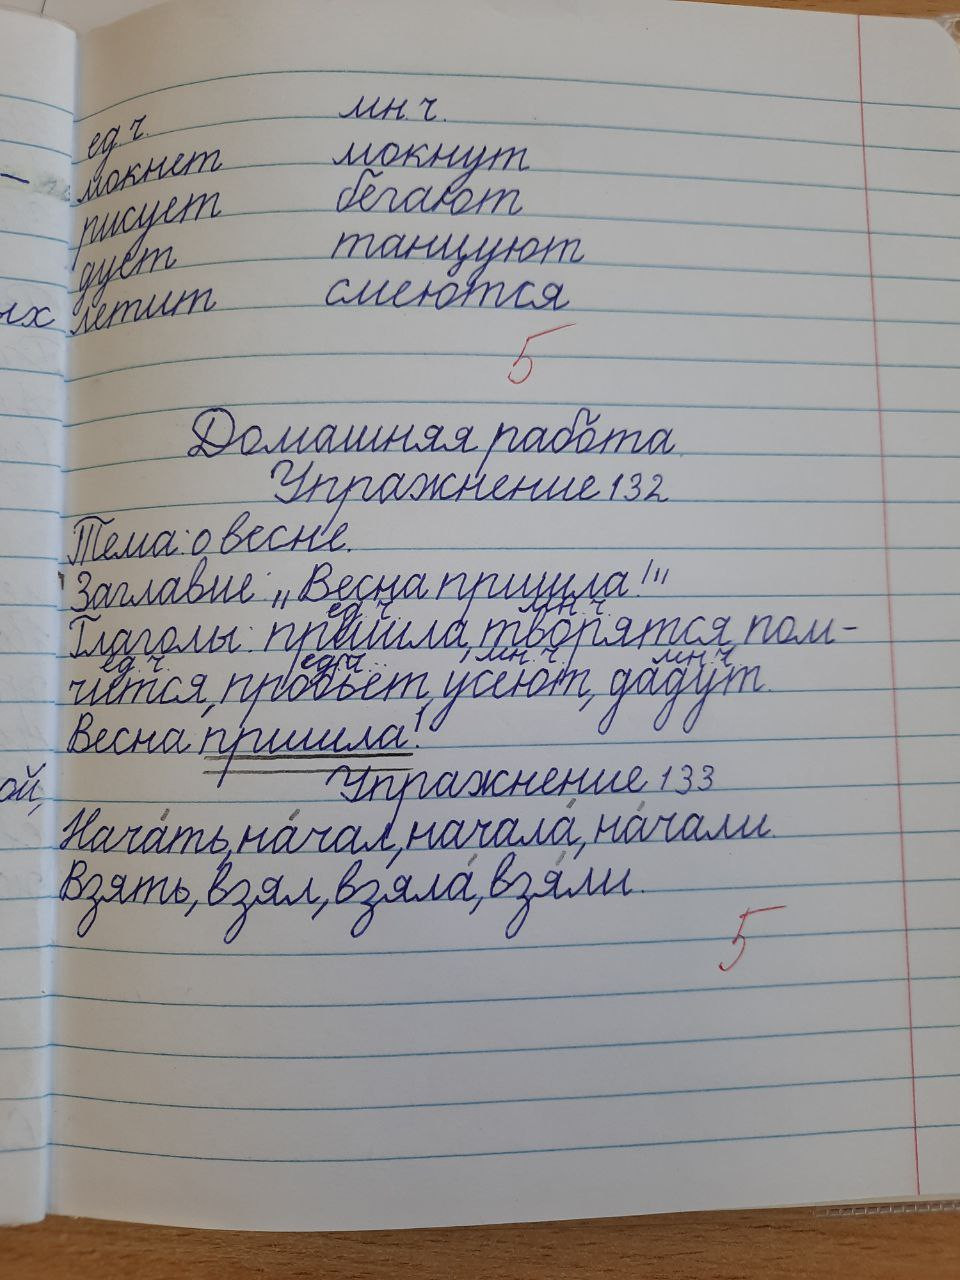 ед.ч. мн.ч.
мокнет мокнут
рисует бегают
дует танцуют
летит смеются
5
Домашняя работа.
Упражнение 132
Тема: о весне.
Заглавие: „Весна пришла!"
ед.ч. мн.ч.
Глаголы: пришла, творятся, пом-
ед.ч. ед.ч. мн.ч. мн.ч.
чится, пробьёт, усеют, дадут.
Весна пришла!
Упражнение 133
Нача́ть, на́чал, начала́, на́чали.
Взять, взял, взяла́, взя́ли.
5
ых
ой,